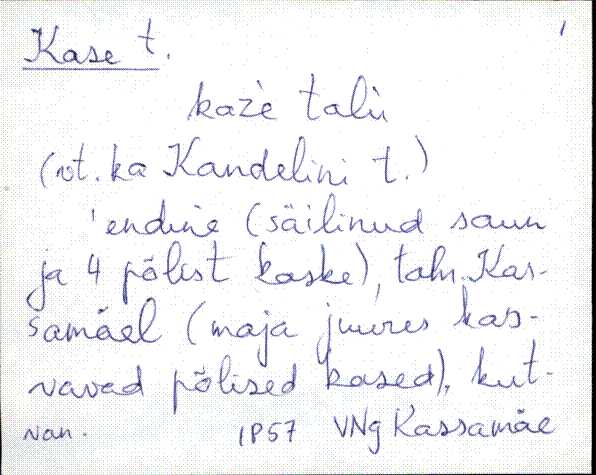 1
Kase t.
kaže talù
(vt. ka Kandelini t.)
'endine (säilinud saun
ja 4 põlist kaske), talu Kas-
samäel (maja juures kas-
vavad põlised kased), kut-
nan. 1P57 VNg Kassamäe